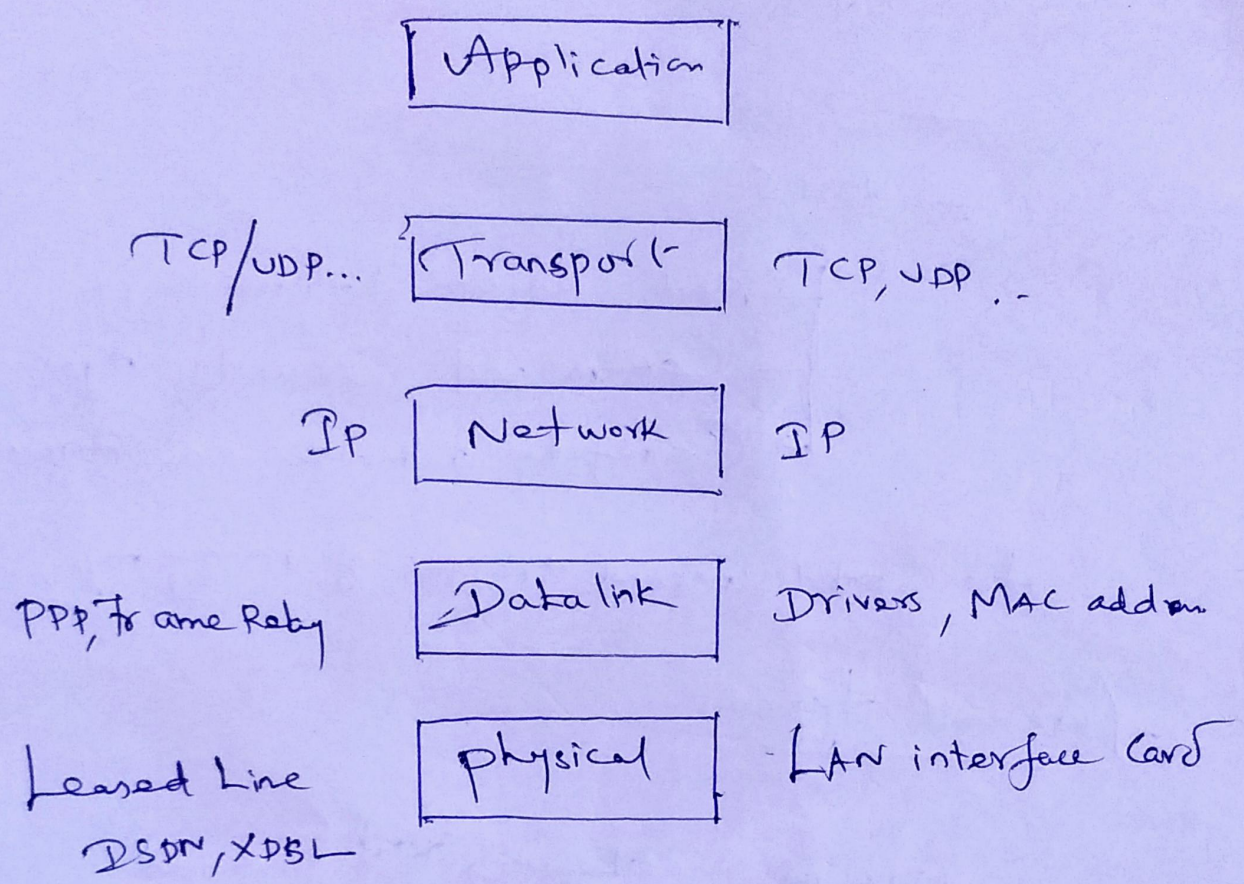 Application
TCP/UDP... Transport TCP, UDP ..
IP Network IP
PPP, Frame Relay Datalink Drivers, MAC
Leased Line physical LAN interface Card
ISDN, XDSL